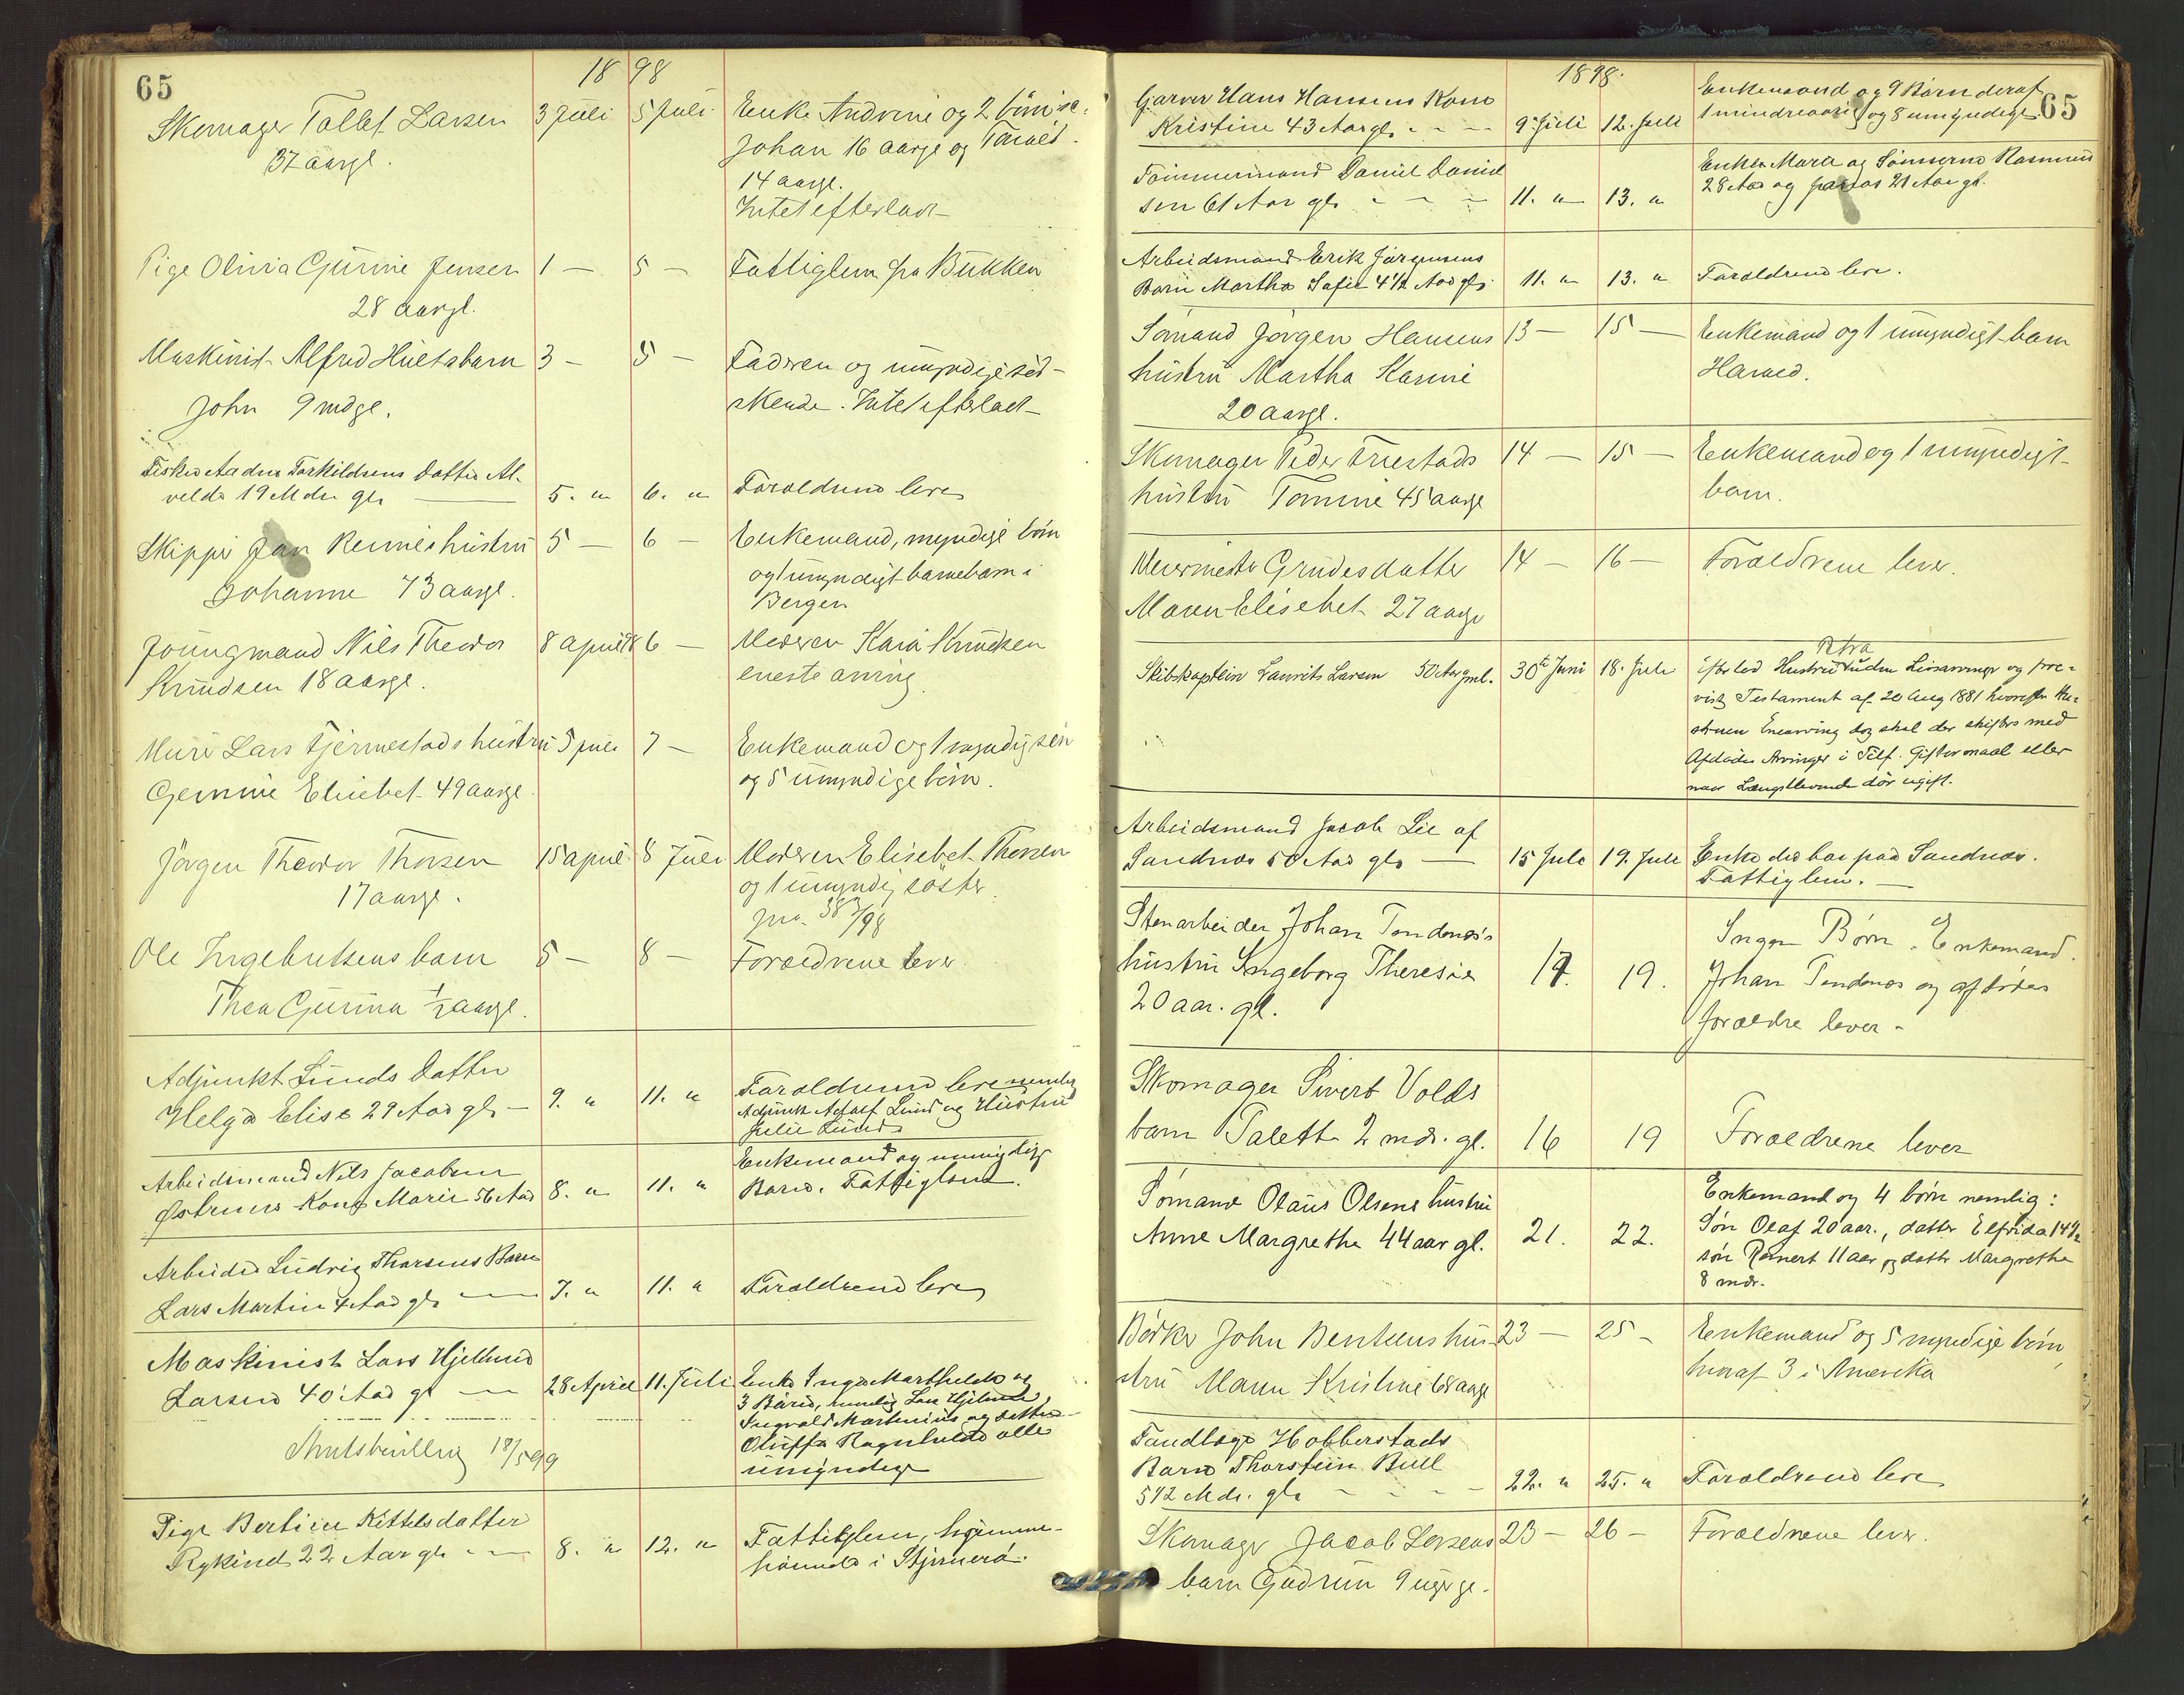 65
18 98
Skomager Tollef Larsen 3 Juli 5 Juli Enke Andrine og 2 børn
37 aargl. Johan 16 aarge og
14 aargl.
Intet efterladt
Pige Olivia Gurine Jensen 1 — 5 — Fattiglem fra Bukken
28 aargl.
Maskinist Alfred Huets barn 3 — 5 — Fadren og umyndige sød-
John 9 mdge. skende. Intet efterladt
Fisker Torkildsens Datter Al-
velde 19 Mdr gl. 5. " 6. " Forældrene lever
Skipper Jan Rennes hustru 5 — 6 — Enkemand, myndige børn
Johanne 73 aargl. og 1 umyndigt barnebarn i
Bergen
Joungmand Nils Theodor 8 april 6 — Moderen Kaia Knudsen
Knudsen 18 aargl. eneste arving
Murer Lars Tjermestads hustru 5 juli 7 — Enkemand og 1 myndig søn
Gemine Elisebet 49 aargl. og 5 umyndige børn.
Jörgen Theodor Thorsen 15 april 8 Juli Moderen Elisebet Thorsen
17 aargl. og 1 umyndig søster.
Ole Ingebretsens barn 5 — 8 — Forældrene lever
Thea Gurina ½ aargl.
Adjunkt Lunds Datter Forældrene lever nemlig
Helga Elise 29 Aar gl. — 9. " 11. " Adjunkt Adolf Lund og Hustru
Julie Lund
Arbeidsmand Nils Jacobsen Enkemand og umyndige
Østrems Kone Marie 56 Aar 8. " 11. " Børn. Fattiglem.
Arbeider Ludvig Thorsens Barn
Lars Martin 4 Aar gl. — 7. " 11. " Forældrene lever
Maskinist Lars Hjelmeid
Larsen 40 Aar gl — 28 April 11. Juli Enke Inga Marthilde og
3 Børn, nemlig Lars Hjelmeid,
Ingvald Martinius og datter
Oluffa Ragnhilda alle
umyndige
18/5 99
Pige Bertine Kittelsdatter
Rykind 22 Aar gl. — 8. " 12. " Fattiglem, hjemme-
hørende i Stjernerø.
65
1898.
Garver Hans Hansens Kone Enkemand og 9 Børn deraf
Kristine 43 Aar gl. 9. Juli 12. Juli 1 mindreaarig og 8 umyndige
Tømmermand Daniel Daniel Enken Marta og Sønnerne Rasmus
sen 61 Aar gl. 11. " 13. " 28 Aar og 21 Aar gl.
Arbeidsmand Erik Jørgensens
Barn Martha Sofie 4½ Aar gl. 11. " 13. " Forældrene lever.
Sømand Jørgen Hansens 13 — 15 — Enkemand og 1 umyndigt barn
hustru Martha Karine Harald.
20 aargl.
Skomager Peder Fruestads 14 — 15 — Enkemand og 1 umyndigt
hustru Tomine 45 aargl barn.
Meiermester Grudes datter 14 — 16 — Forældrene lever.
Maren Elisebet 27 aargl
Petra
Skibskaptein Laurits Larsen 50 Aar gml. 30te Juni 18. Juli Efterlod Hustru uden Livsarvinger og fore-
vist Testament af 20 Aug 1881 hvorefter Hu-
struen Enearving dog skal der skiftes med
Afdødes Arvinger i Tilf. Giftermaal eller
naar Længstlevende dör ugift.
Arbeidsmand Jacob Lie af
Sandnæs 50 Aar gl. — 15 Juli 19. Juli Enke der bor paa Sandnæs.
Fattiglem. —
Stenarbeider Johan Tendenæs's Ingen Børn. Enkemand.
hustru Ingeborg Theresie 17. 19. Johan Tendenæs og afdödes
20 aar. gl. forældre lever -
Skomager Sivert Volds
barn Talette 2 mdr. gl. 16 19 Forældrene lever
Sømand Olaus Olsens hustru Enkemand og 4 børn nemlig:
Anne Margrethe 44 aar gl. 21. 22. Søn Olaf 20 aar., datter Elfrida 14½
søn Reinert 11 aar og datter Margrethe
8 mdr.
Bødker John Bentsens hu- 23 — 25 — Enkemand og 5 myndige børn,
stru Maren Kristine 68 aargl hvoraf 3 i Amerika
Tandlæge Hobberstads
Barn Thorstein Bull
5½ Mdr. gl. 22. " 25. " Forældrene lever
Skomager Jacob Larsens 23 — 26 — Forældrene lever.
barn Gudrun 9 uger gl.